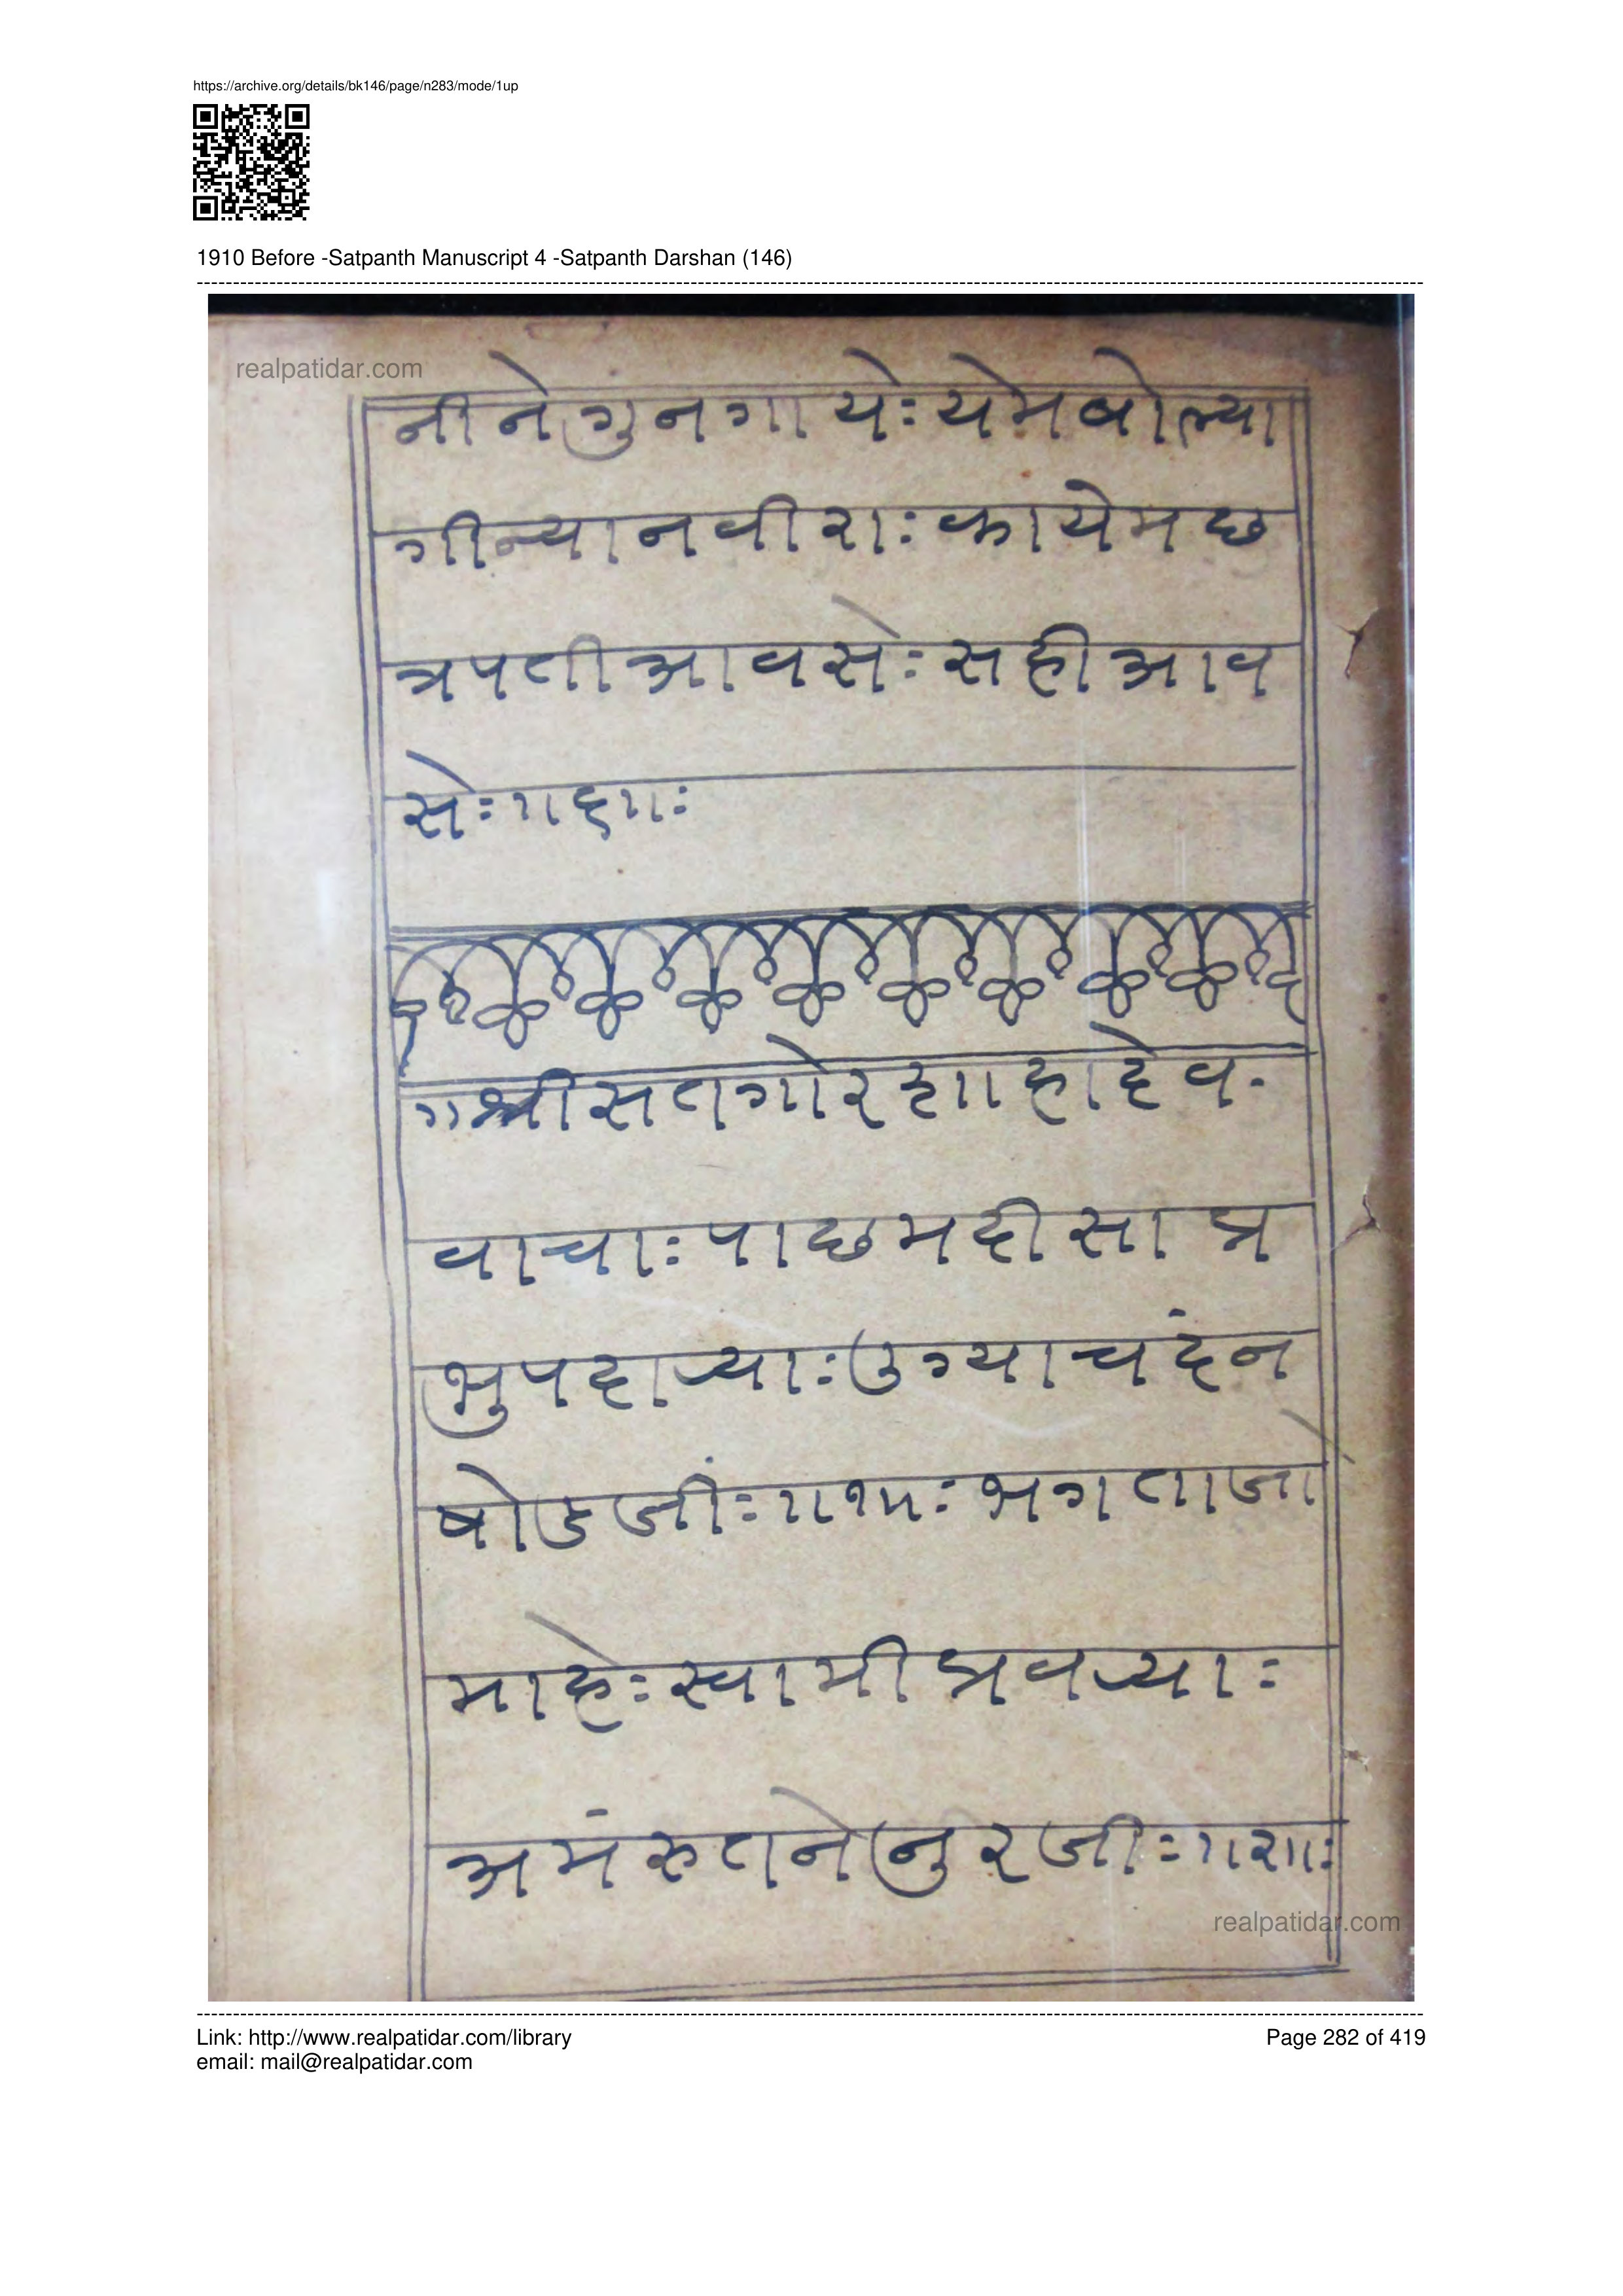 https://archive.org/details/bk146/page/n283/mode/1up
1910 Before -Satpanth Manuscript 4 -Satpanth Darshan (146)
realpatidar.com
नीनेगुनगायेः येमबोल्या
गीन्यानवीराः कायेमछ
त्रपतीआवसेः सहीआव
सेः ॥६॥ः
॥श्रीसतगोर
वाचाः पाछमदीसा प्र
भुपधार्‍याः उग्याचदंन
षोडजीः ॥१॥ः भगताजा
माहेः स्वामीप्रवर्‍याः
अमंरुतनेनुरजीः ॥२॥ः
realpatidar.com
Link: http://www.realpatidar.com/library
Page 282 of 419
email: mail@realpatidar.com